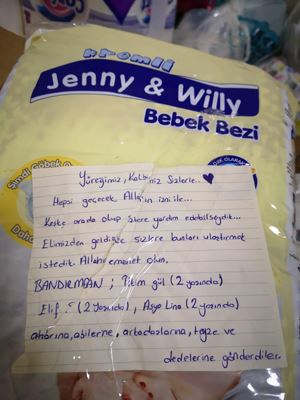 premil
Jenny & Willy
Bebek Bezi
Şimdi Göbek O
Daha
Yüreğimiz, Kalbiniz Sizlerle.. ♥
Hepsi geçecek Allah'ın izni ile...
Keşke orada olup sizlere yardım edebilseydik...
Elimizden geldiğince sizlere bunları ulaştırmak
istedik. Allah'a emanet olun.
BANDIRMA'DAN ; gül (2 yaşında)
Elif (2 yaşında), Asya Lina (2 yaşında)
abilerine, arkadaşlarına, teyze ve
dedelerine gönderdiler.